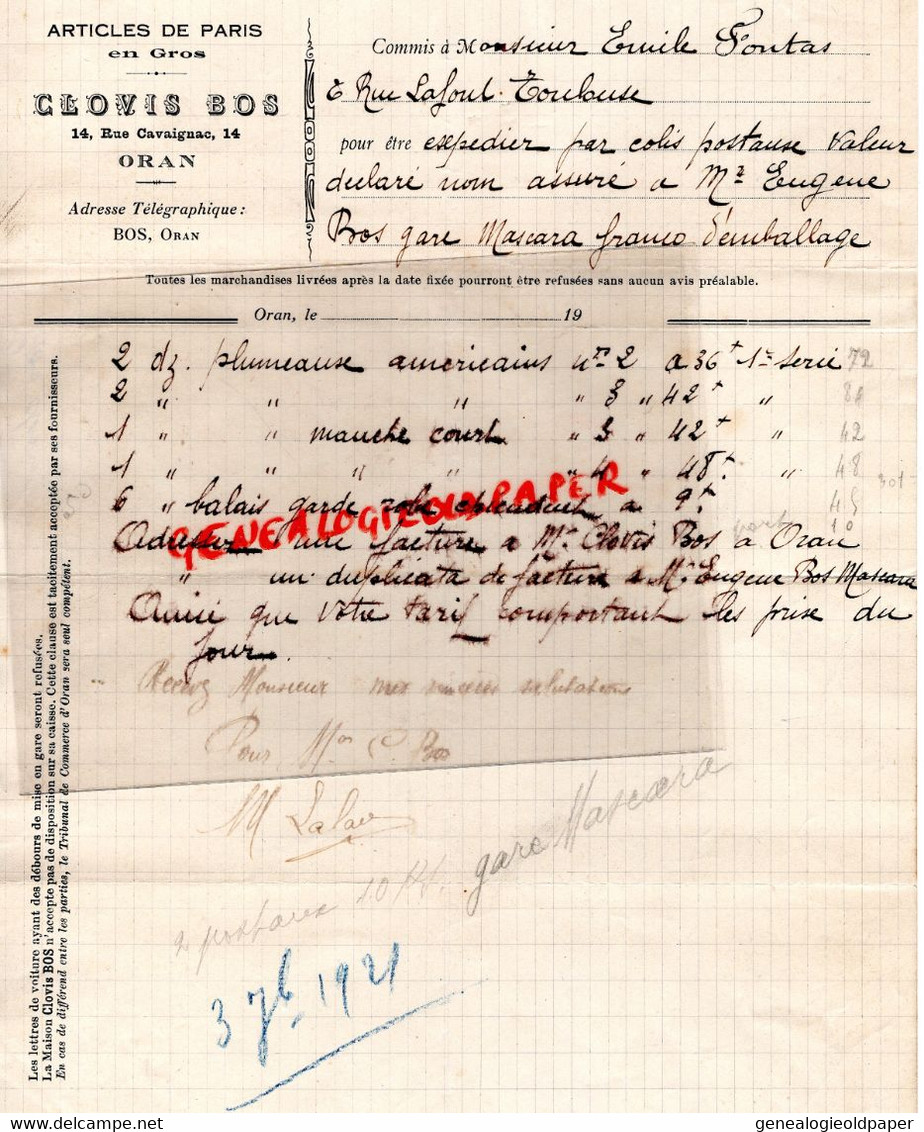 ARTICLES DE PARIS
en Gros
CLOVIS BOS
14, Rue Cavaignac, 14
ORAN
Adresse Télégraphique:
BOS, ORAN
Commis à Monsieur Emile Fontas
Rue Lafont. Toulouse
pour être expedier par colis postause valeur
declaré nom assuré a Mr Eugene
Bos gare Mascara franco d'emballage
Toutes les marchandises livrées après la date fixée pourront être refusées sans aucun avis préalable.
Oran, le 19
2 dz. plumeause americains nos 2 a 36f 1re serie 72
2 " " " " 3 " 42f " 84
1 " " manche court " 3 " 42f " 42
1 " " " " " 4 " 48f " 48
6 " balais garde robe a 9f 45
301
10
GENEALOGIEOLDPAPER
Adresser une facture a Mr Clovis Bos a Oran
" un duplicata de facture a Mr Eugene Bos Mascara
Ainsi que votre tarif comportant les prise du
jour.
Recevez Monsieur mes sincères salutations
Pour Mon C. Bos
gare Mascara
2 postaux 10 K
3 7b 1921
Les lettres de voiture ayant des débours de mise en gare seront refusées.
La Maison Clovis BOS n'accepte pas de disposition sur sa caisse. Cette clause est tacitement acceptée par ses fournisseurs.
En cas de différend entre les parties, le Tribunal de Commerce d'Oran sera seul compétent.
delcampe.net
genealogieoldpaper